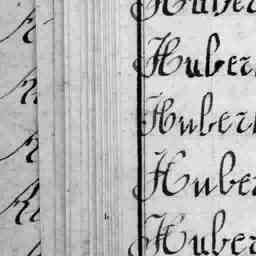 Huber
Huber
Huber
Huber
Huber